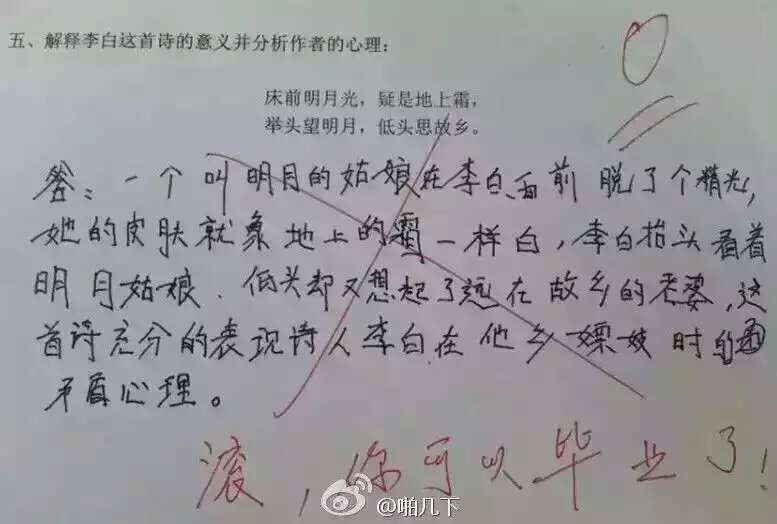 五、解释李白这首诗的意义并分析作者的心理:
0
床前明月光，疑是地上霜，
举头望明月，低头思故乡。
答：一个叫明月的姑娘在李白面前脱了个精光，
她的皮肤就象地上的霜一样白，李白抬头看着
明月姑娘．低头却又想起了远在故乡的老婆，这
首诗充分的表现诗人李白在他乡嫖妓时的
矛盾心理。
滚，你可以毕业了！
@啪几下